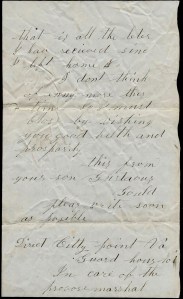 that is all the letter
I have received since
I left home &
I dont think
of any more this
time
by wishing
you good helth and
prosperity
this from
your son
write soon
as posible
Direct City point Va
Guard house
In care of the
provost marshal